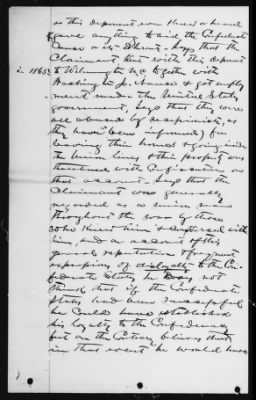 as this deponent ever knew or heard
gave anything to aid the Confederate
Cause or its - Says that the
Claimant went with this deponent
in 1863 to Wilmington N.C. together with
Washington J. and got employ-
ment under the United States
government, Says that they were
all abused by secessionists, as
they have been informed for
leaving their homes & going inside
the Union lines & their property was
threatened with Confiscation on
that account - Says that the
Claimant was generally
regarded as a union man
throughout the war by those
who knew him & conversed with
him, and on account of this
general reputation & frequent
expressions of disloyalty to the Con-
federate States, he does not
think that if the Confederate
States had been successful
he could have established
his loyalty to the Confederacy
but on the Contrary believes that
in that event he would have